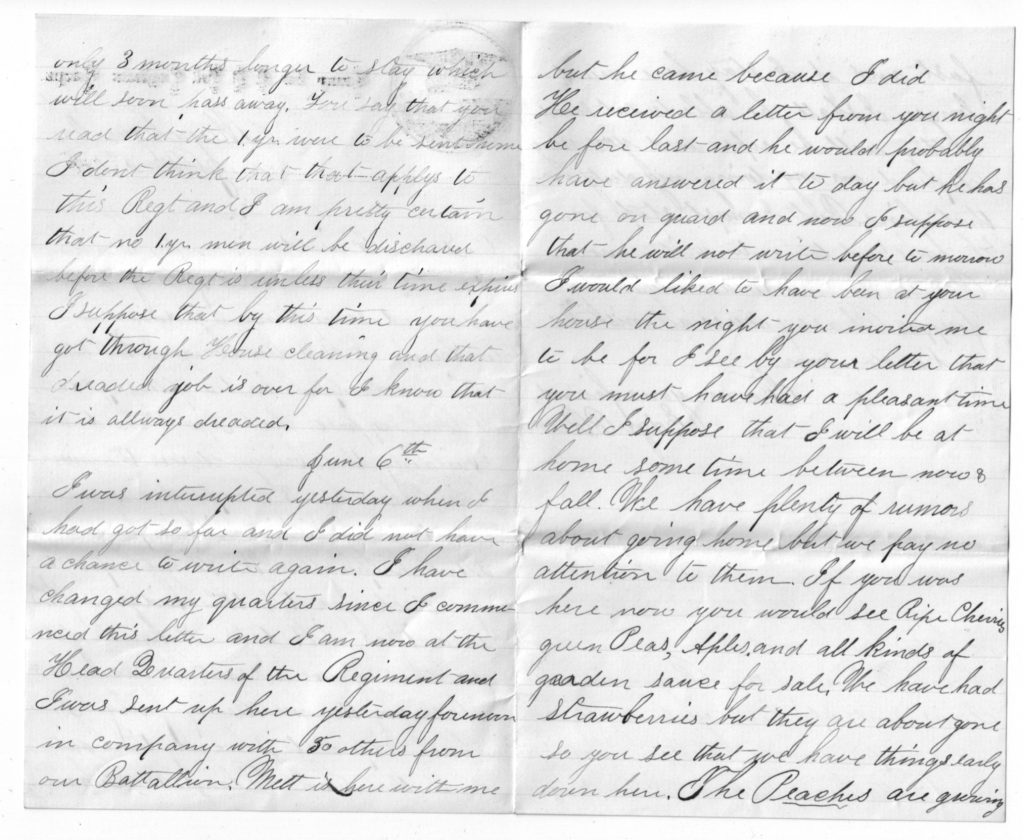 only 3 months longer to stay which
will soon pass away. You say that you
read that the 1 yr. were to be sent home
I dont think that that applys to
this Regt and I am pretty certain
that no 1 yr. men will be dischared
before the Regt is unless their time expires
I suppose that by this time you have
got through House cleaning and that
dreaded job is over for I know that
it is allways dreaded.
June 6th
I was interrupted yesterday when I
had got so far and I did not have
a chance to write again. I have
changed my quarters since I comme
nced this letter and I am now at the
Head Quarters of the Regiment and
I was sent up here yesterday forenoon
in company with 50 others from
our Battallion. Mett is here with me
but he came because I did
He received a letter from you night
before last and he would probably
have answered it to day but he has
gone on guard and now I suppose
that he will not write before to morrow
I would liked to have been at your
house the night you invited me
to be for I see by your letter that
you must have had a pleasant time
Well I suppose that I will be at
home some time between now &
fall. We have plenty of rumors
about going home but we pay no
attention to them. If you was
here now you would see Ripe Cherries
green Peas, Aples, and all kinds of
gaaden sauce for sale. We have had
strawberries but they are about gone
so you see that we have things early
down here. The Peaches are growing